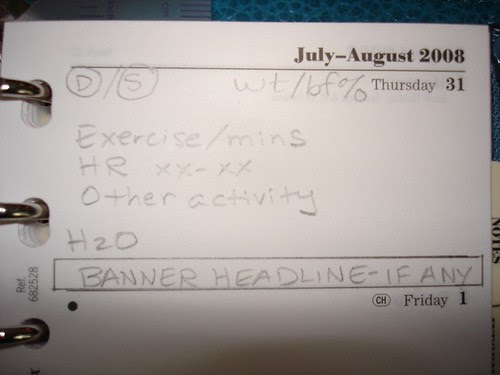 July–August 2008
D/S wt/bf% Thursday 31
Exercise/mins
HR xx-xx
Other activity
H2O
BANNER HEADLINE-IF ANY
CH Friday 1
Ref.
682528
NOTES